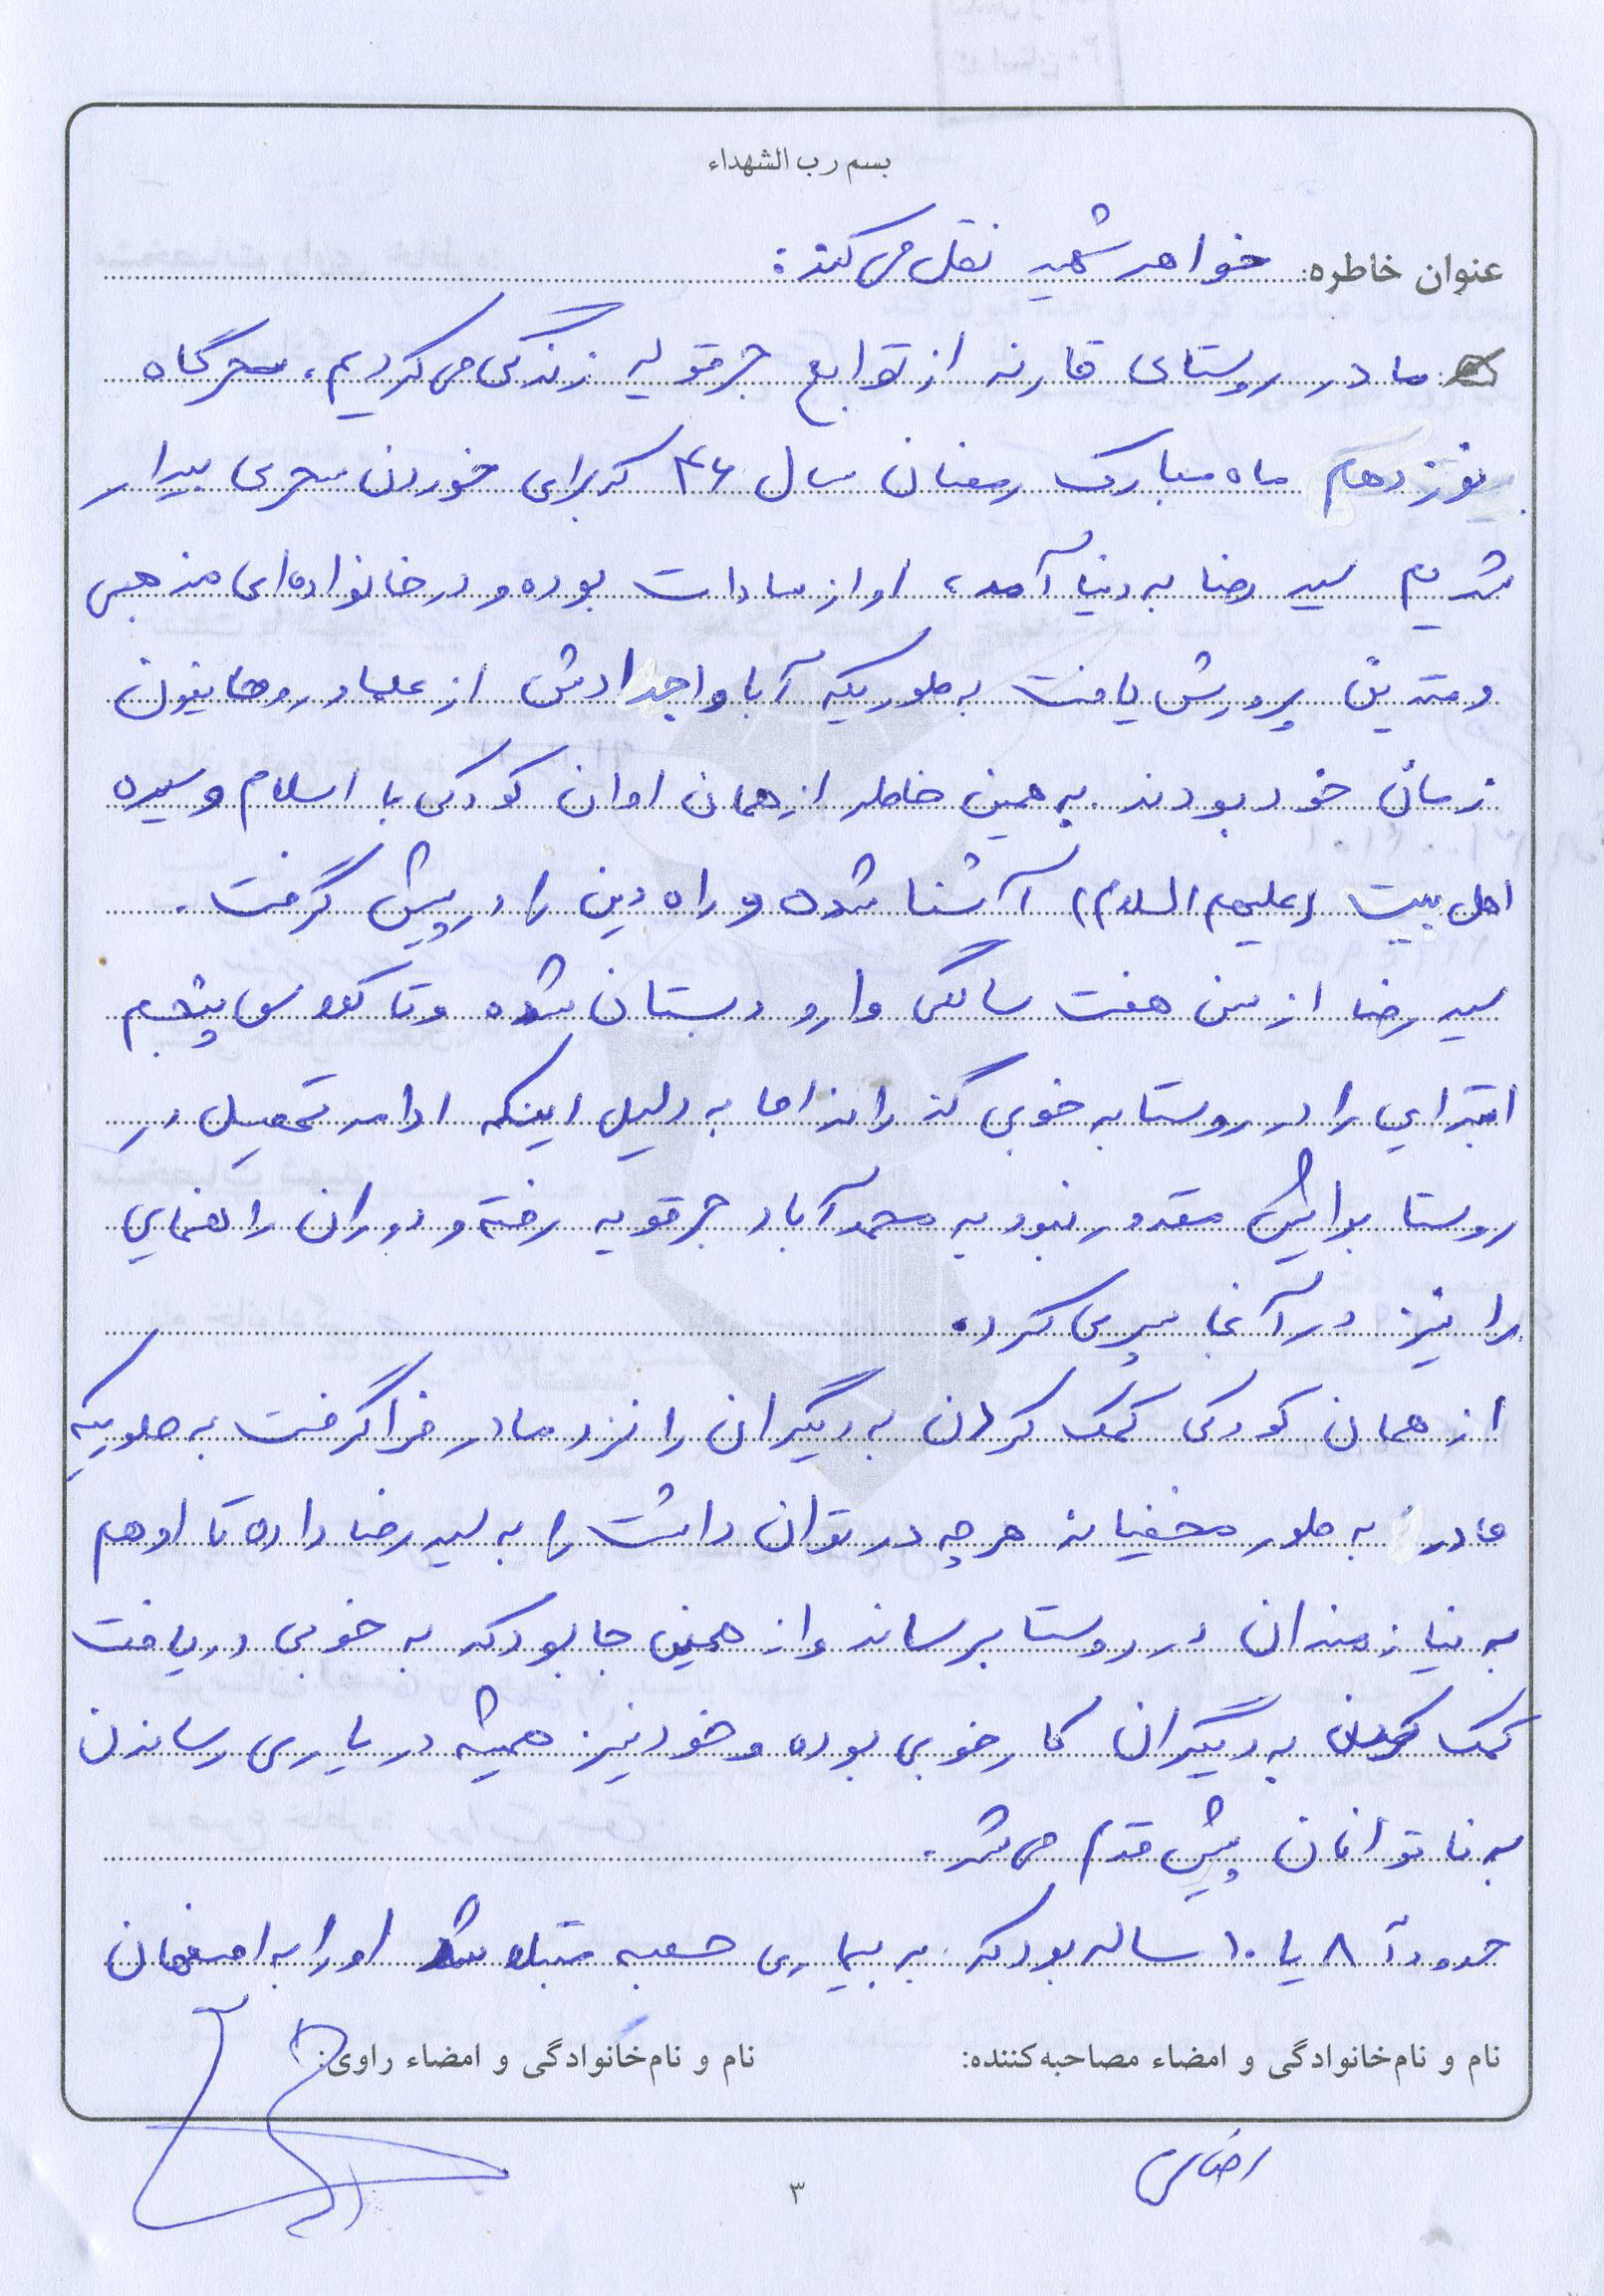 بسم رب الشهداء
عنوان خاطره: خواهر شهید نقل می کند:
ما در روستای قارنه از توابع جرقویه زندگی می کردیم، سحرگاه
نوزدهم ماه مبارک رمضان سال ۴۶ که برای خوردن سحری بیدار
شدیم سید رضا به دنیا آمد، او از سادات بوده و در خانواده ای مذهبی
و متدین پرورش یافت به طوریکه آبا و اجدادش از علما و روحانیون
زمان خود بودند. به همین خاطر از همان اوان کودکی با اسلام و سیره
اهل بیت (علیهم السلام) آشنا شده و راه دین را در پیش گرفت.
سید رضا از سن هفت سالگی وارد دبستان شده و تا کلاس پنجم
ابتدایی را در روستا به خوبی گذراند اما به دلیل اینکه ادامه تحصیل در
روستا برایش مقدور نبود به محمدآباد جرقویه رفته و دوران راهنمایی
را نیز در آنجا سپری کرد.
از همان کودکی کمک کردن به دیگران را نزد مادر فرا گرفت به طوریکه
مادر به طور مخفیانه هر چه در توان داشت را به سید رضا داده تا او هم
به نیازمندان در روستا برساند و از همین جا بود که به خوبی دریافت
کمک کردن به دیگران کار خوبی بوده و خود نیز همیشه در یاری رساندن
به ناتوانان پیش قدم می شد.
حدوداً ۸ یا ۱۰ ساله بود که به بیماری حصبه مبتلا شد او را به اصفهان
نام و نام‌خانوادگی و امضاء مصاحبه‌کننده: نام و نام‌خانوادگی و امضاء راوی:
۳